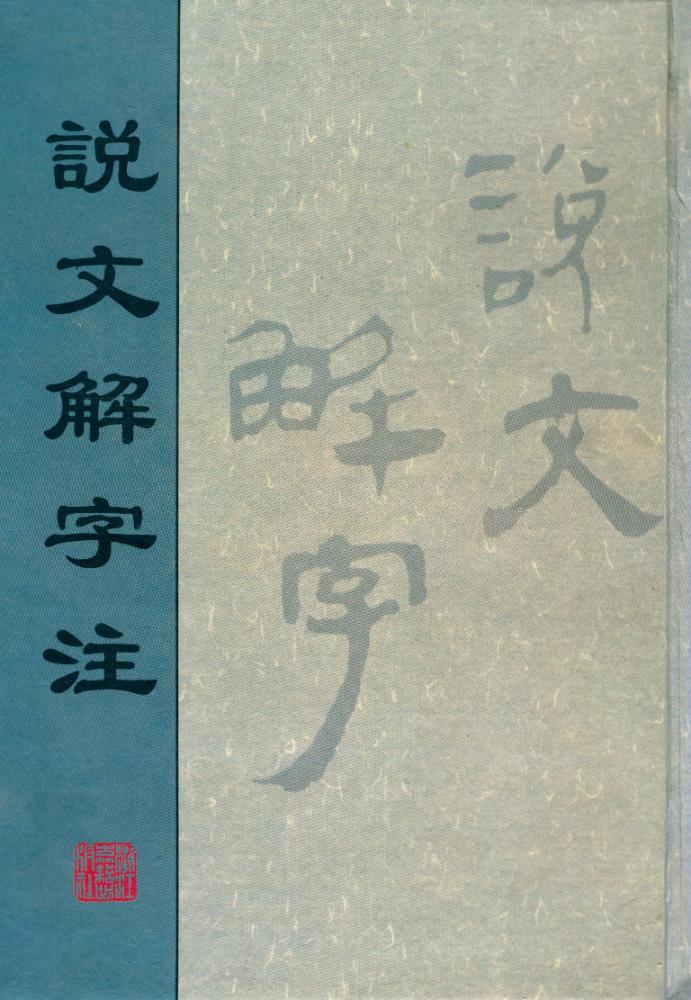 說文
解字
説文解字注